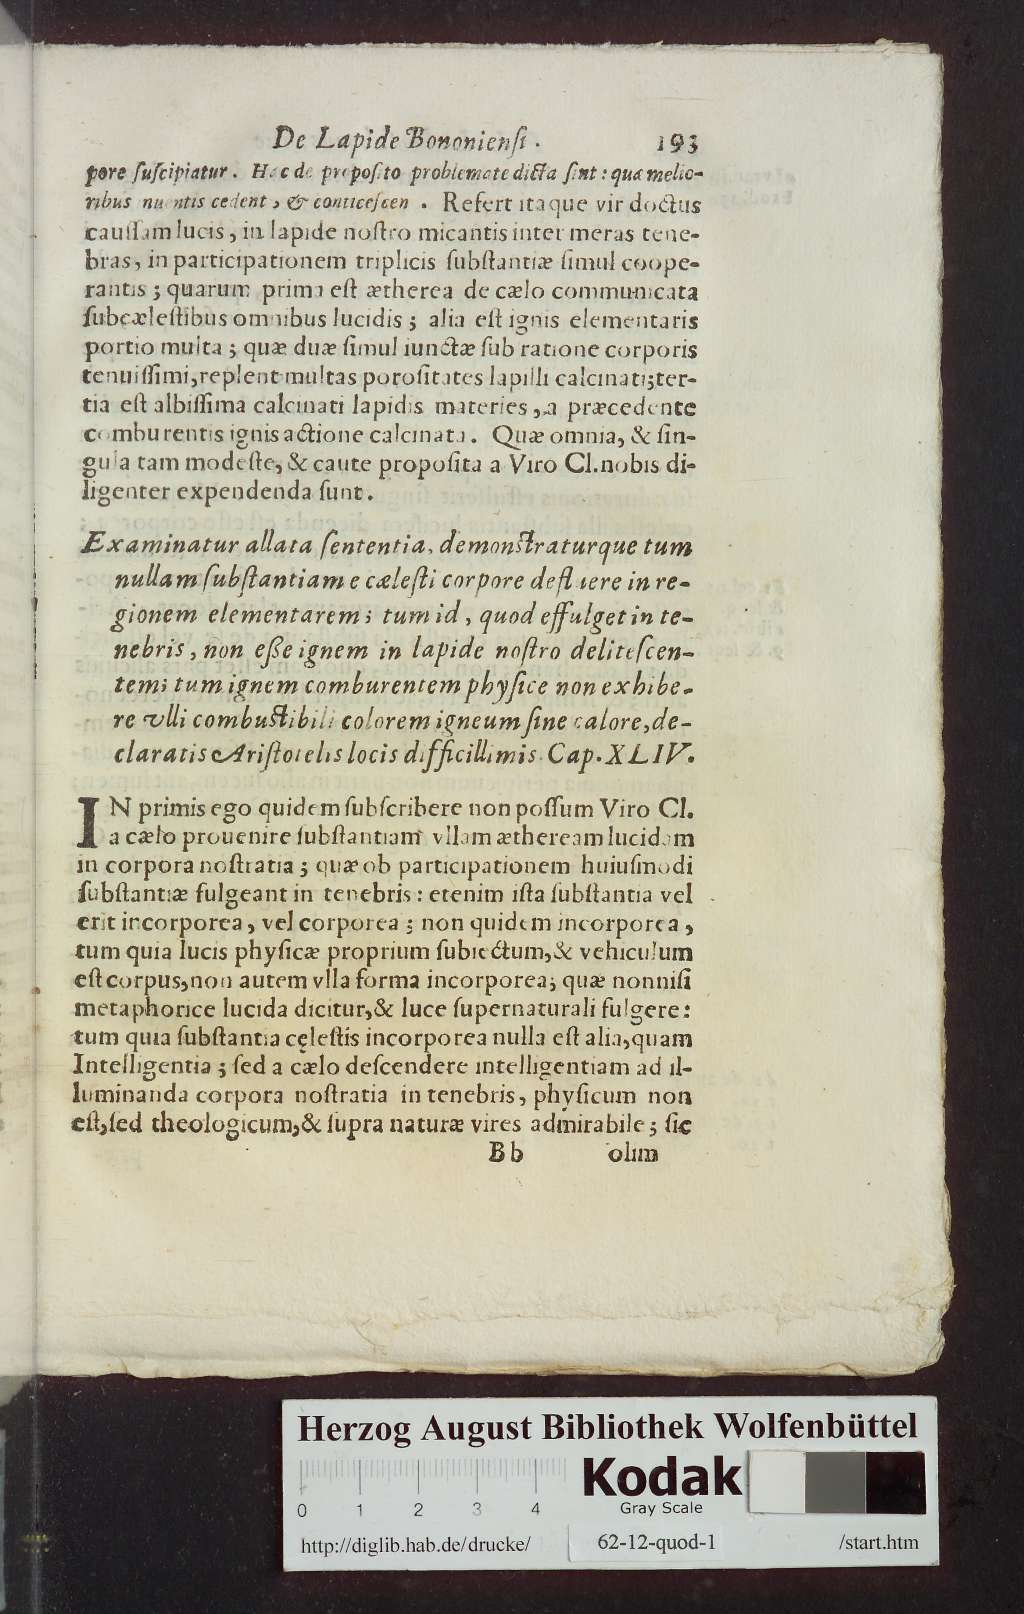 De Lapide Bononiensi. 193
pore suscipiatur. Hæc de proposito problemate dicta sint: quæ melio-
ribus nuentis cedent, & conticescen . Refert itaque vir doctus
caussam lucis, in lapide nostro micantis inter meras tene-
bras, in participationem triplicis substantiæ simul coope-
rantis; quarum prima est ætherea de cælo communicata
subcælestibus omnibus lucidis; alia est ignis elementaris
portio multa; quæ duæ simul iunctæ sub ratione corporis
tenuissimi, replent multas porositates lapilli calcinati; ter-
tia est albissima calcinati lapidis materies, a præcedente
comburentis ignis actione calcinata. Quæ omnia, & sin-
gula tam modeste, & caute proposita a Viro Cl. nobis di-
ligenter expendenda sunt.
Examinatur allata sententia, demonstraturque tum
nullam substantiam e cælesti corpore defluere in re-
gionem elementarem; tum id, quod effulget in te-
nebris, non esse ignem in lapide nostro delitescen-
tem; tum ignem comburentem physice non exhibe-
re vlli combustibili colorem igneum sine calore, de-
claratis Aristotelis locis difficillimis. Cap. XLIV.
IN primis ego quidem subscribere non possum Viro Cl.
a cælo prouenire substantiam vllam ætheream lucidam
in corpora nostratia; quæ ob participationem huiusmodi
substantiæ fulgeant in tenebris: etenim ista substantia vel
erit incorporea, vel corporea; non quidem incorporea,
tum quia lucis physicæ proprium subiectum, & vehiculum
est corpus, non autem vlla forma incorporea; quæ nonnisi
metaphorice lucida dicitur, & luce supernaturali fulgere:
tum quia substantia cęlestis incorporea nulla est alia, quam
Intelligentia; sed a cælo descendere intelligentiam ad il-
luminanda corpora nostratia in tenebris, physicum non
est, sed theologicum, & supra naturæ vires admirabile; sic
Bb olim
Herzog August Bibliothek Wolfenbüttel
Kodak
Gray Scale
0 1 2 3 4
http://diglib.hab.de/drucke/ 62-12-quod-1 /start.htm